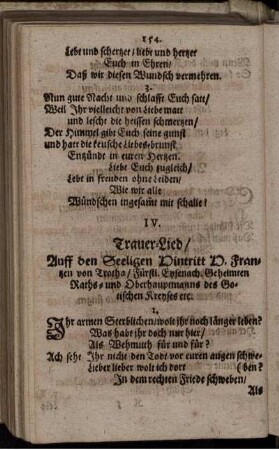 154.
Lebt und schertzet/ liebt und hertzet
Euch in Ehren/
Daß wir diesen Wundsch vermehren.
3.
Nun gute Nacht und schlafft Euch satt/
Weil Ihr vielleicht von Liebe matt
und lescht die heissen schmertzen/
Der Himmel gibt Euch seine gunst
und hatt die keusche Liebesbrunst
Entzündt in euren Hertzen.
Liebt Euch zugleich/
Lebt in freuden ohne Leiden/
Wie wir alle
Wündschen ingesamt mit schalle!
IV.
Trauer-Lied/
Auff den Seeligen Hintritt D. Fran-
tzen von Trotha/ Fürstl. Eysenach. Geheimten
Raths- und Oberhauptmanns des Go-
tischen Kreyses etc.
1.
Ihr armen Sterblichen/ wolt ihr noch länger leben?
Was habt ihr doch nur hier/
Als Wehmuth für und für?
Ach seht Ihr nicht den Todt vor euren augen schwe-
Lieber lieber wolt ich dort (ben?
In dem rechten Friede schweben/
Als